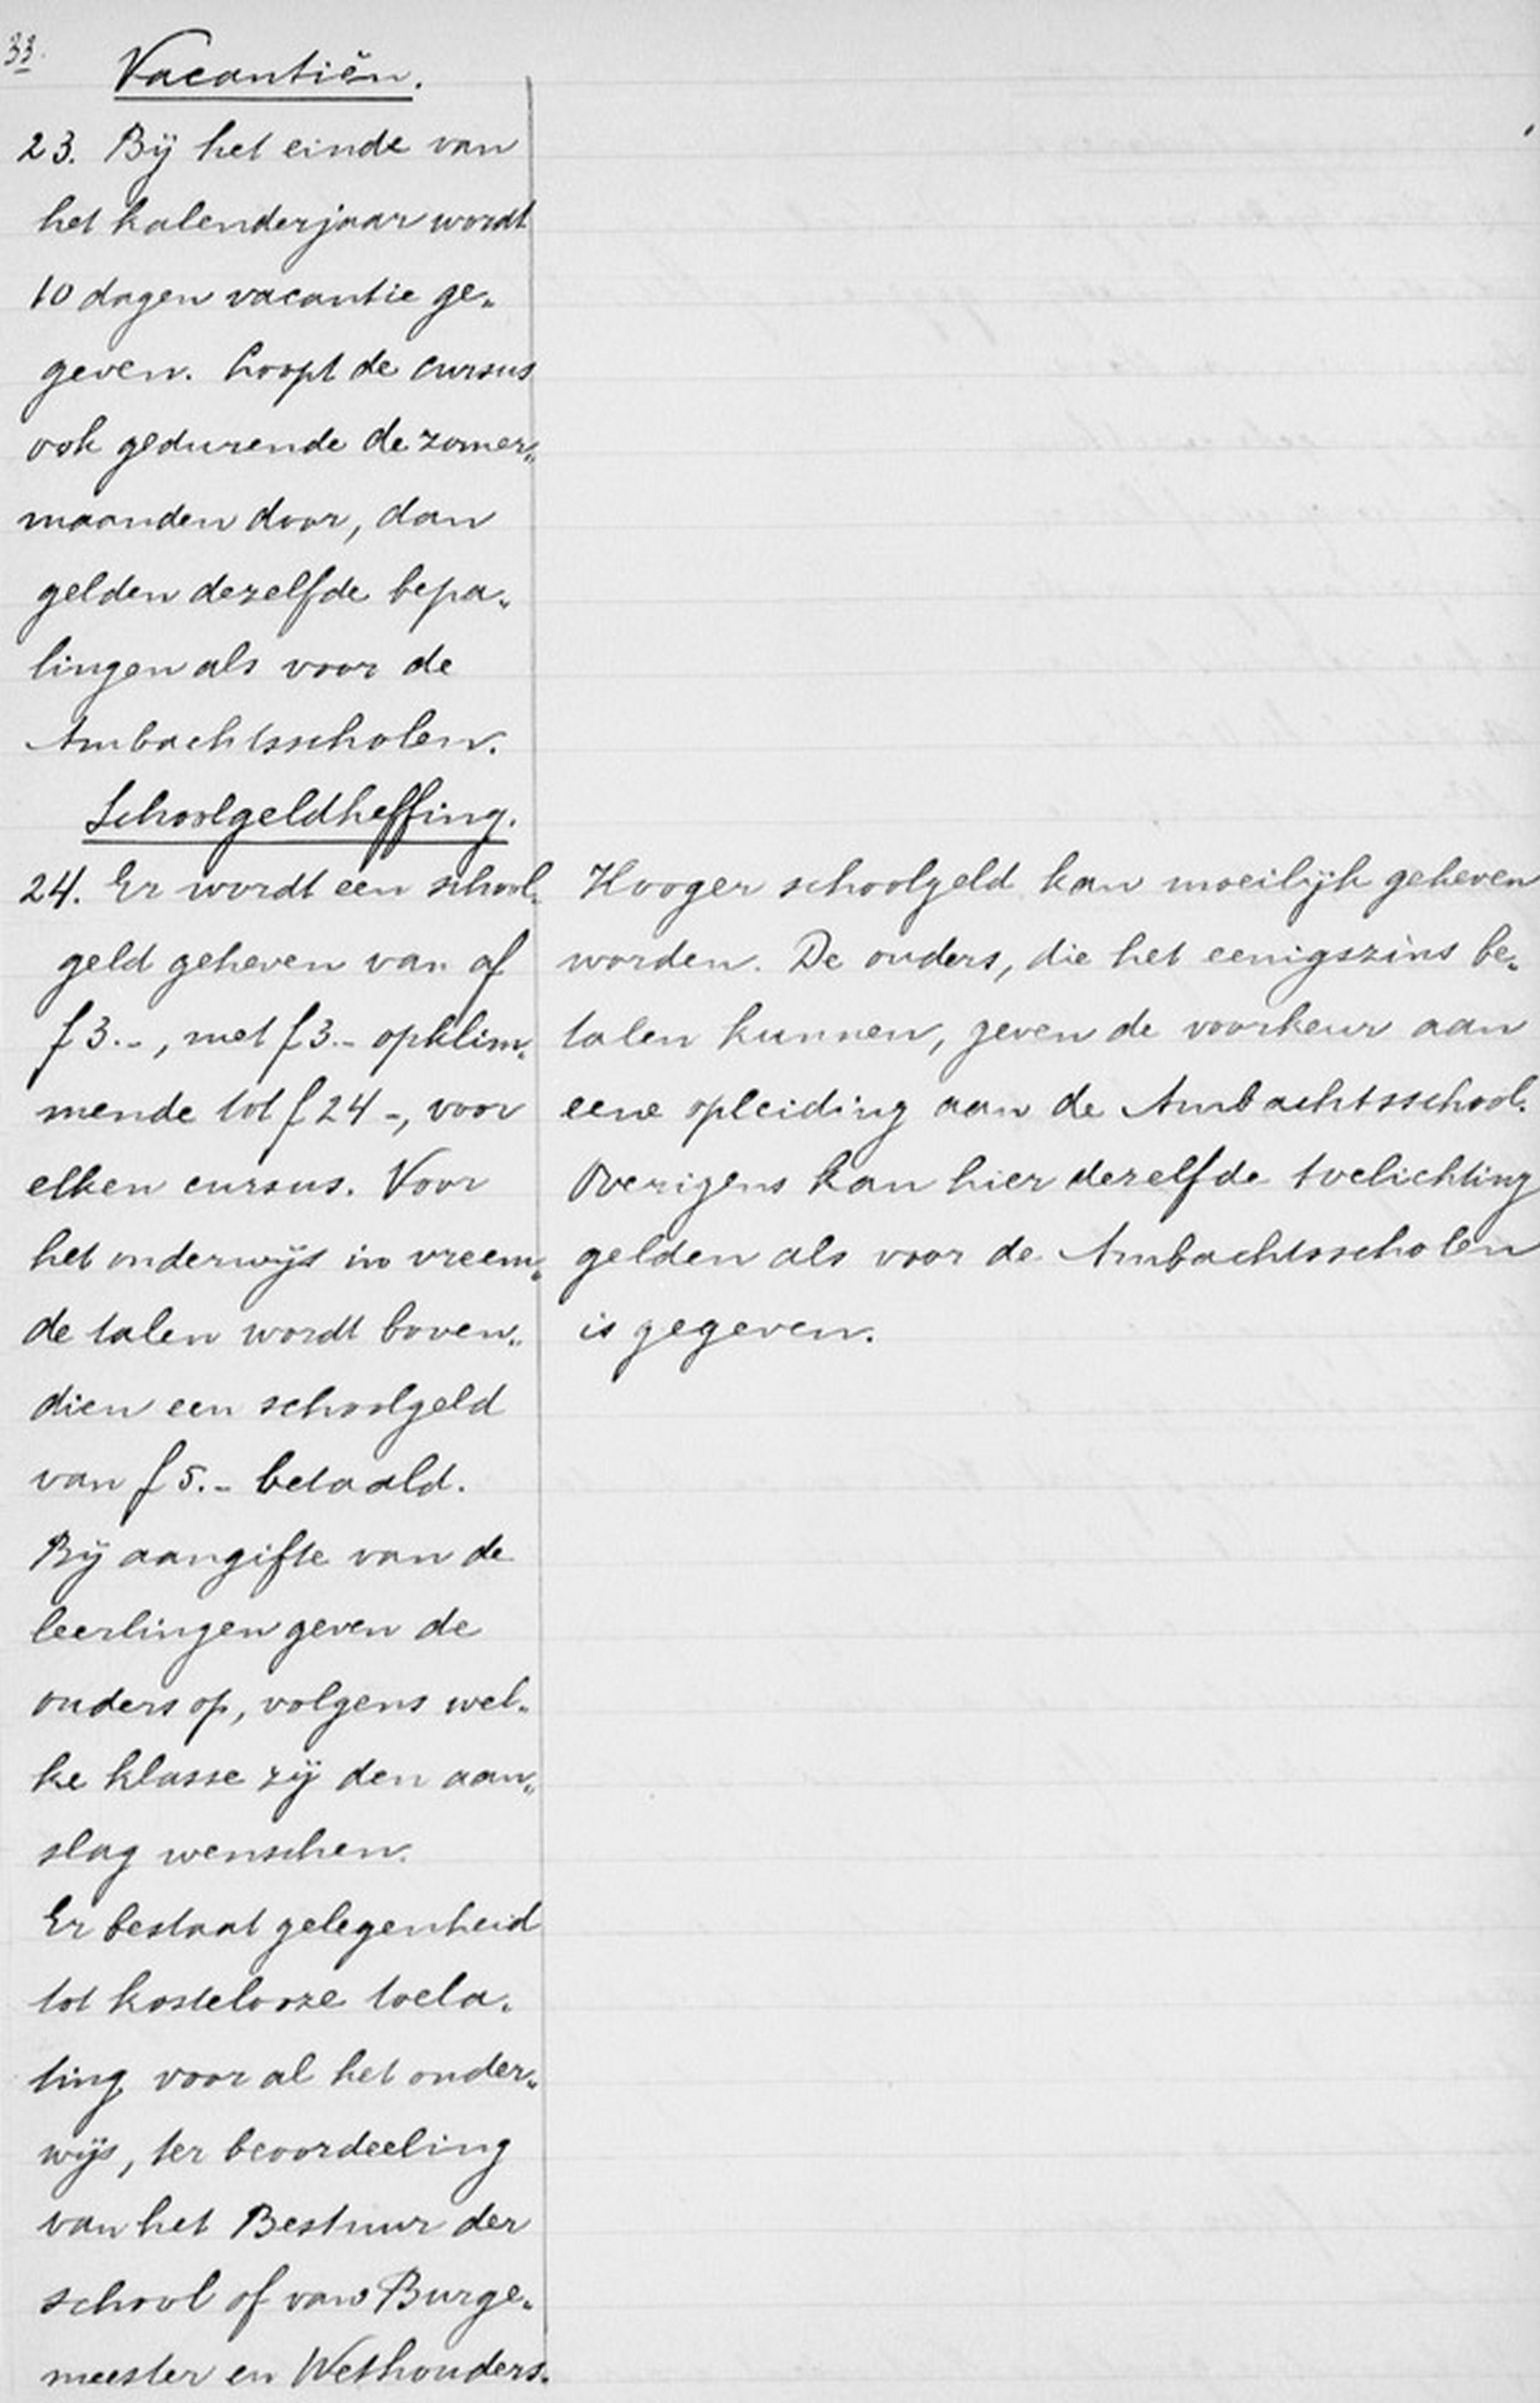 33.
Vacantiën.
23. Bij het einde van
het kalenderjaar wordt
10 dagen vacantie ge„
geven. Loopt de cursus
ook gedurende de zomer„
maanden door, dan
gelden dezelfde bepa„
lingen als voor de
Ambachtsscholen.
Schoolgeldheffing.
24. Er wordt een school„
geld geheven van af
f 3.-, met f 3.- opklim„
mende tot f 24-, voor
elken cursus. Voor
het onderwijs in vreem„
de talen wordt boven„
dien een schoolgeld
van f 5.- betaald.
Bij aangifte van de
leerlingen geven de
ouders op, volgens wel„
ke klasse zij den aan„
slag wenschen.
Er bestaat gelegenheid
tot kostelooze toela„
ting voor al het onder„
wijs, ter beoordeeling
van het Bestuur der
school of van Burge„
meester en Wethouders.
Hooger schoolgeld kan moeilijk geheven
worden. De ouders, die het eenigszins be„
talen kunnen, geven de voorkeur aan
eene opleiding aan de Ambachtsschool.
Overigens kan hier dezelfde toelichting
gelden als voor de Ambachtsscholen
is gegeven.